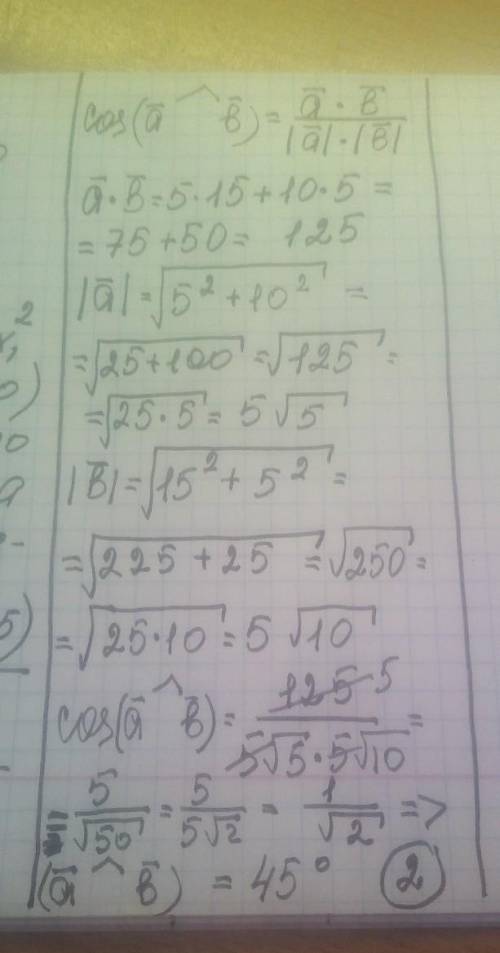 cos(a̅ ^ b̅) = a̅ · b̅ / |a̅| · |b̅|
a̅ · b̅ = 5 · 15 + 10 · 5 =
= 75 + 50 = 125
|a̅| = √(5² + 10²) =
= √(25 + 100) = √125 =
= √(25 · 5) = 5 √5
|b̅| = √(15² + 5²) =
= √(225 + 25) = √250 =
= √(25 · 10) = 5 √10
cos(a̅ ^ b̅) = 125 5 / 5√5 · 5√10 =
= 5/√50 = 5/5√2 = 1/√2 =>
(a̅ ^ b̅) = 45° 2